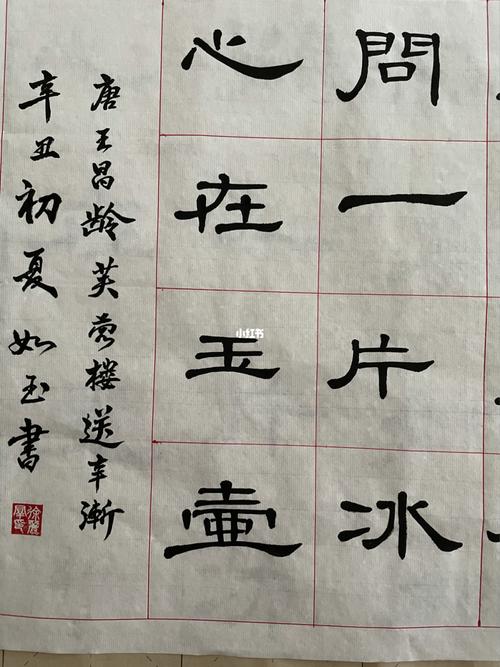 問一片冰
心在玉壺
唐王昌龄芙蓉楼送辛漸
辛丑初夏如玉書
小红书